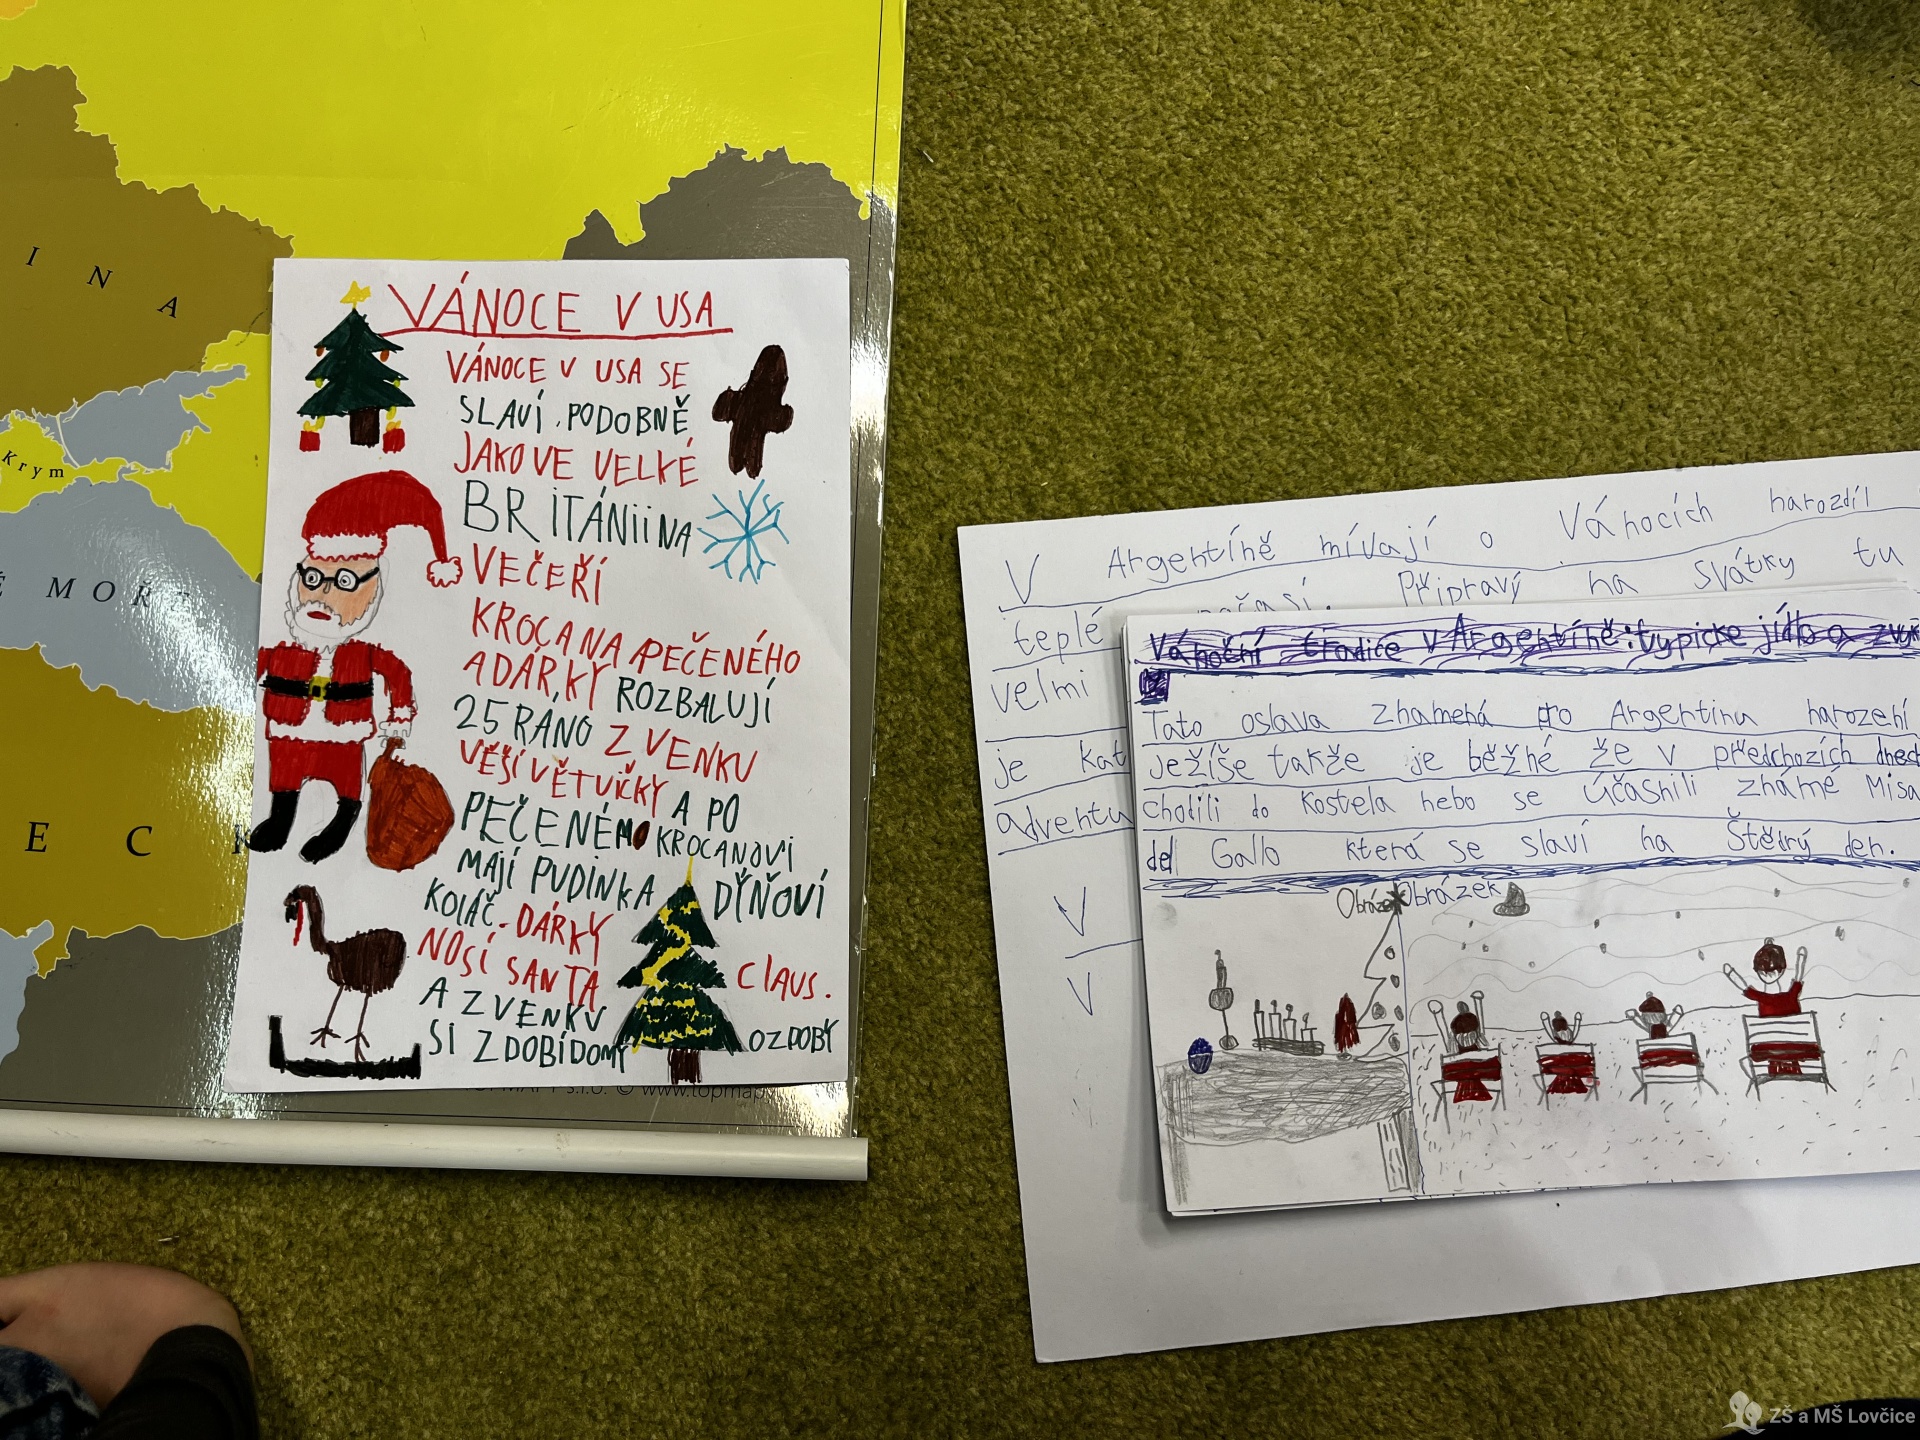 I N A
Krym
MOŘ
E C
VÁNOCE V USA
VÁNOCE V USA SE
SLAVÍ PODOBNĚ
JAKO VE VELKÉ
BRITÁNII NA
VEČEŘÍ
KROCANA PEČENÉHO
A DÁRKY ROZBALUJÍ
25 RÁNO Z VENKU
VĚŠÍ VĚTVIČKY A PO
PEČENÉM KROCANOVI
MAJÍ PUDINK A DÝŇOVÍ
KOLÁČ. DÁRKY
NOSÍ SANTA CLAUS.
A Z VENKU
SI ZDOBÍ DOMY OZDOBY
www.topmap
V Argentíně mívají o Vánocích narozdíl
teplé počasí. Připravý na svátky tu
velmi
je kat
adventu
V
V
Vánoční tradice v Argentíně: typicke jídlo a zvyk
Tato oslava znamená pro Argentinu narození
Ježíše takže je běžné že v předchozích dnech
chodili do kostela nebo se účasnili známé Misa
del Gallo která se slaví na Štědrý den.
Obrázek Obrázek
ZŠ a MŠ Lovčice